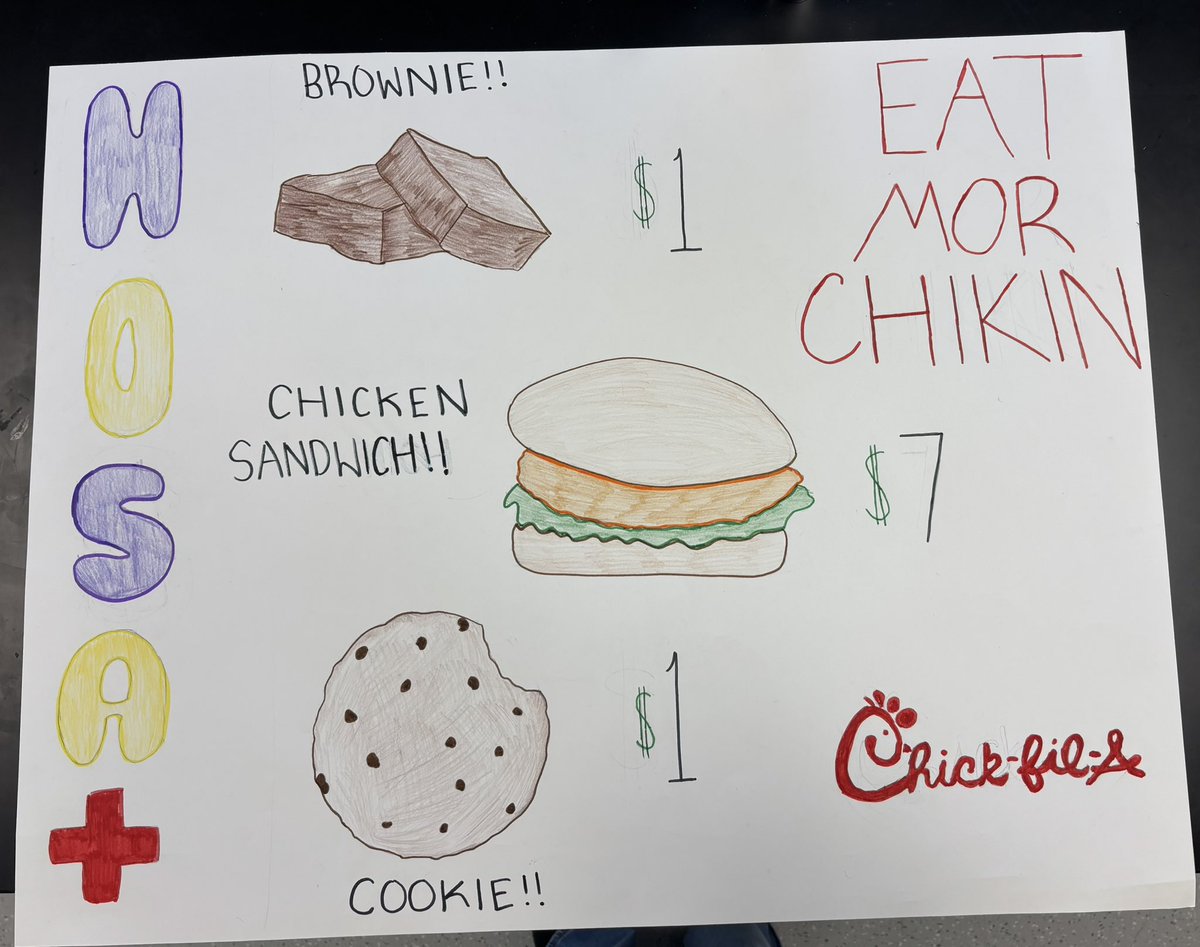 HOSA
BROWNIE!!
$1
EAT
MOR
CHIKIN
CHICKEN
SANDWICH!!
$7
$1
COOKIE!!
Chick-fil-A